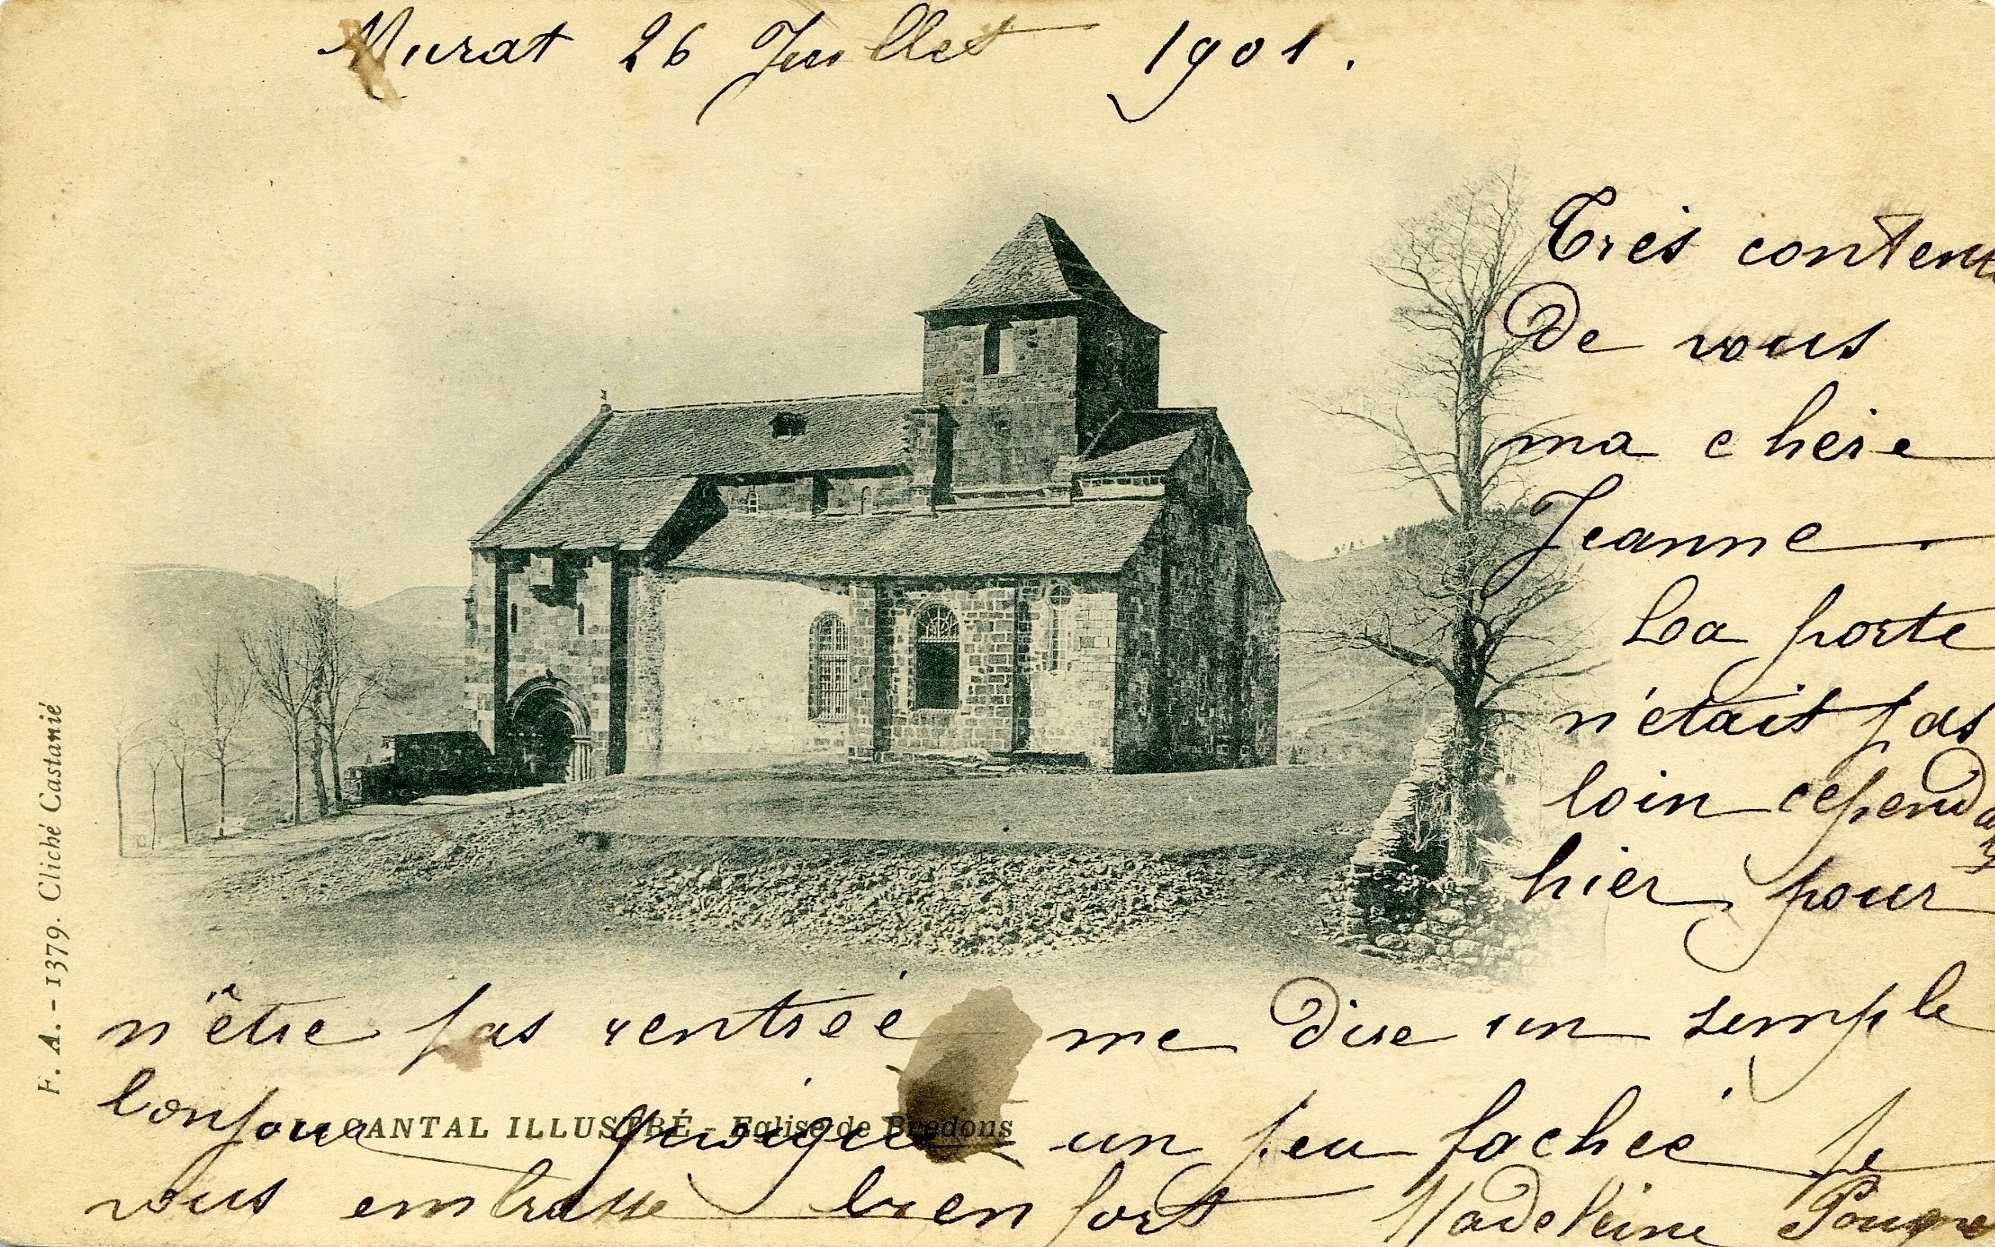 Murat 26 Juillet 1901.
Très contente
de vous
ma chère
Jeanne
La porte
n'était pas
loin cependant
hier pour
n'être pas rentrée me dire un semple
bonjour Quoique un peu fachée je
vous embrasse bien fort Madeleine
CANTAL ILLUSTRÉ - Eglise de Bredons
F. A. - 1379. Cliché Castanié